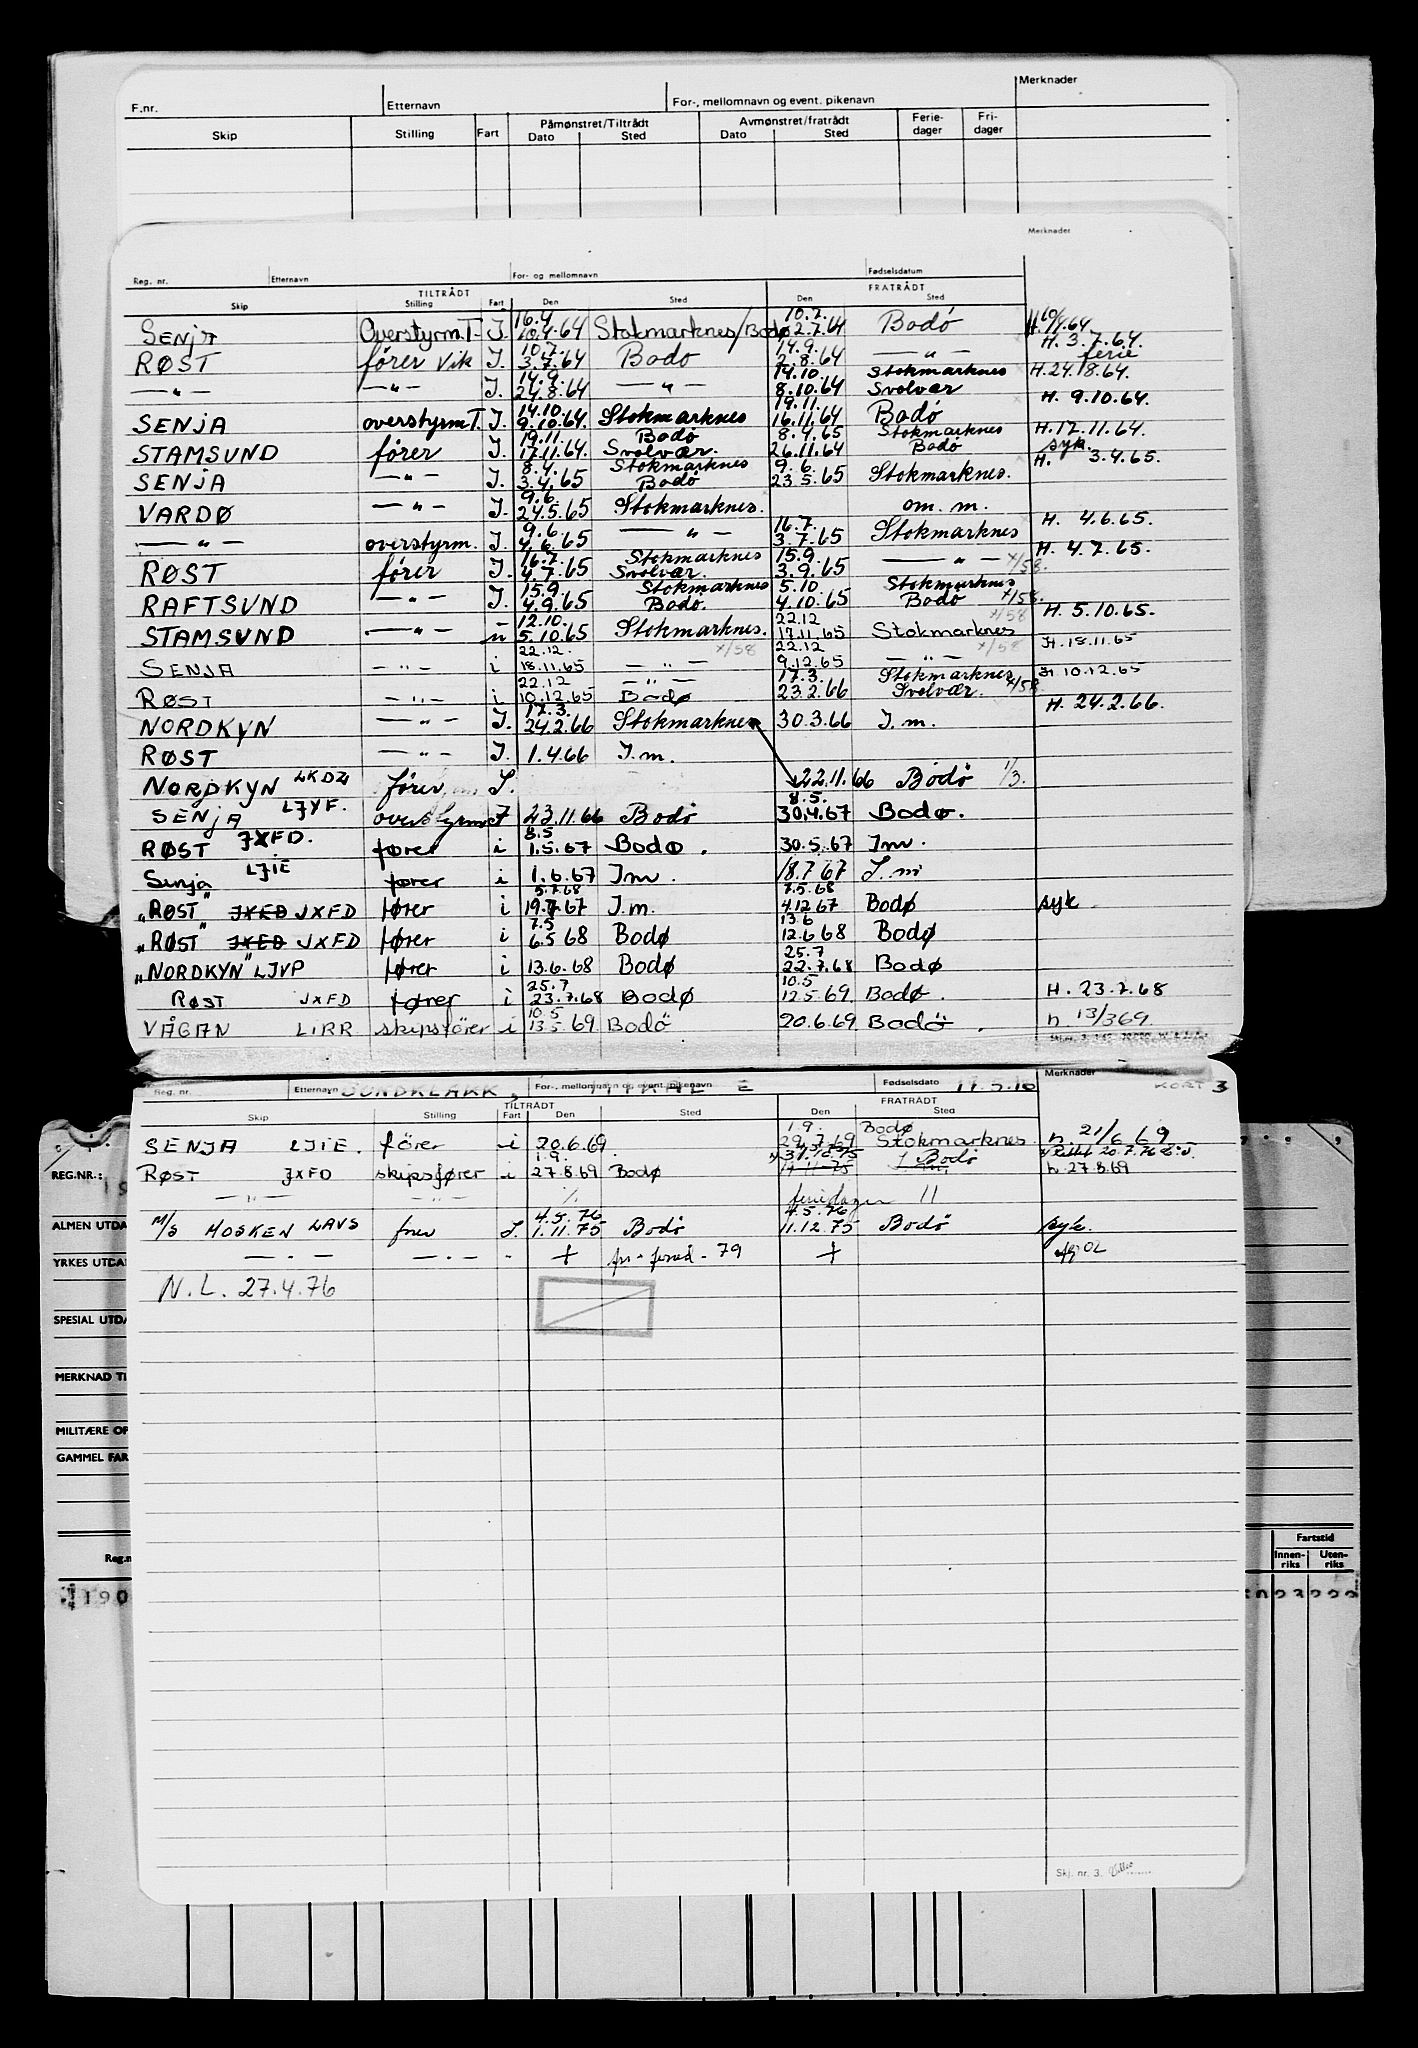 F.nr. Etternavn For-, mellomnavn og event. pikenavn Merknader
Skip Stilling Fart Påmønstret/Tiltrådt Dato Sted Avmønstret/fratrådt Dato Sted Ferie-dager Fri-dager
Merknader
Reg. nr. Etternavn For- og mellomnavn Fødselsdatum
TILTRÅDT FRATRÅDT
Skip Stilling Fart Den Sted Den Sted
16.4 10.7.
SENJA Overstyrm.T. I. 10.4.64 Stokmarknes/Bodø 2.7.64 Bodó
10.7. 14.9. H. 3.7.64. ferie
RØST fører vik I. 3.7.64 Bodo 2.8.64 — " —
14.9. 14.10. Stokmarknes H.24.8.64.
— " — — " — I. 24.8.64 — " — 8.10.64 Svolvær
14.10. 19.11. H. 9.10.64.
SENJA overstyrm.T. I. 9.10.64. Stokmarknes 16.11.64 Bodó
19.11. Bodó 8.4.65 Stokmarknes H.17.11.64.
STAMSUND fører I. 17.11.64. Svolvær. 26.11.64 Bodó syk.
8.4. Stokmarknes 9.6. H. 3.4.65.
SENJA — " — I. 3.4.65 Bodó 23.5.65 Stokmarknes.
9.6.
VARDØ — " — I. 24.5.65 Stokmarknes. om. m.
9.6. 16.7. H. 4.6.65.
— " — overstyrm. I. 4.6.65 — " — 3.7.65 Stokmarknes
16.7. Stokmarknes 15.9. H. 4.7.65.
RØST fører I. 4.7.65 Svolvær. 3.9.65 — " — x/58.
15.9. Stokmarknes 5.10. Stokmarknes
RAFTSUND — " — I. 4.9.65 Bodó. 4.10.65 Bodó x/58.
12.10. 22.12 x/58 H. 5.10.65.
STAMSUND — " — " 5.10.65 Stokmarknes. 17.11.65 Stokmarknes
22.12. x/58 22.12 x/58 H.18.11.65
SENJA — " — i 18.11.65 — " — 9.12.65 — " —
22.12 — " — 17.3. Stokmarknes H 10.12.65
RØST — " — i 10.12.65 Bodø 23.2.66 Svolvær. x/58.
17.3. H. 24.2.66.
NORDKYN — " — I. 24.2.66 Stokmarknes 30.3.66 I.m.
RØST — " — I. 1.4.66 I.m.
NORDKYN LKDZ fører I. 22.11.66 Bodó 1/3.
8.5.
SENJA LJYF. overstyrm I 23.11.66 Bodó 30.4.67 Bodo.
8.5
RØST JXFD. fører i 1.5.67 Bodo. 30.5.67 Im.
Senja LJIE fører i 1.6.67 Im. 18.7.67 I.m
5.7.68 7.5.68
"RØST" JXED JXFD fører i 19.7.67 I.m. 4.12.67 Bodø syk.
7.5 13.6
"RØST" JXED JXFD fører i 6.5.68 Bodø 12.6.68 Bodø
25.7
"NORDKYN" LJVP fører i 13.6.68 Bodø 22.7.68 Bodø
25.7 10.5
RØST JXFD fører i 23.7.68 Bodø 12.5.69 Bodø. H. 23.7.68
10.5
VÅGAN LIRR skipsfører i 13.5.69 Bodö 20.6.69 Bodö. h. 13/369.
Reg. nr. Etternavn SUNDKLAKK, For-, mellomnavn og event. pikenavn E Fødselsdato Merknader KORT 3
TILTRÅDT FRATRÅDT
Skip Stilling Fart Den Sted Den Sted
1.9. Bodø
SENJA LJIE. fører i 20.6.69 29.7.69 Stokmarknes. h. 21/6 69
1.9. 31.10.75 20.7.76
RØST JXFD skipsfører i 27.8.69 Bodø Bodö h. 27.8.69
— " — — " — feriedager 11
4.5.76 4.5.76
M/S HOSKEN LAVS fører I. 1.11.75 Bodó 11.12.75 Bodó syk.
— . — — . — " + + 79
N.L. 27.4.76
Skj. nr. 3.
REG.NR.:
ALMEN UTDA
YRKES UTDA
SPESIAL UTDA
MERKNAD TI
MILITÆRE OP
GAMMEL FAR
Reg.n
190
Fartstid
Innen-riks Uten-riks